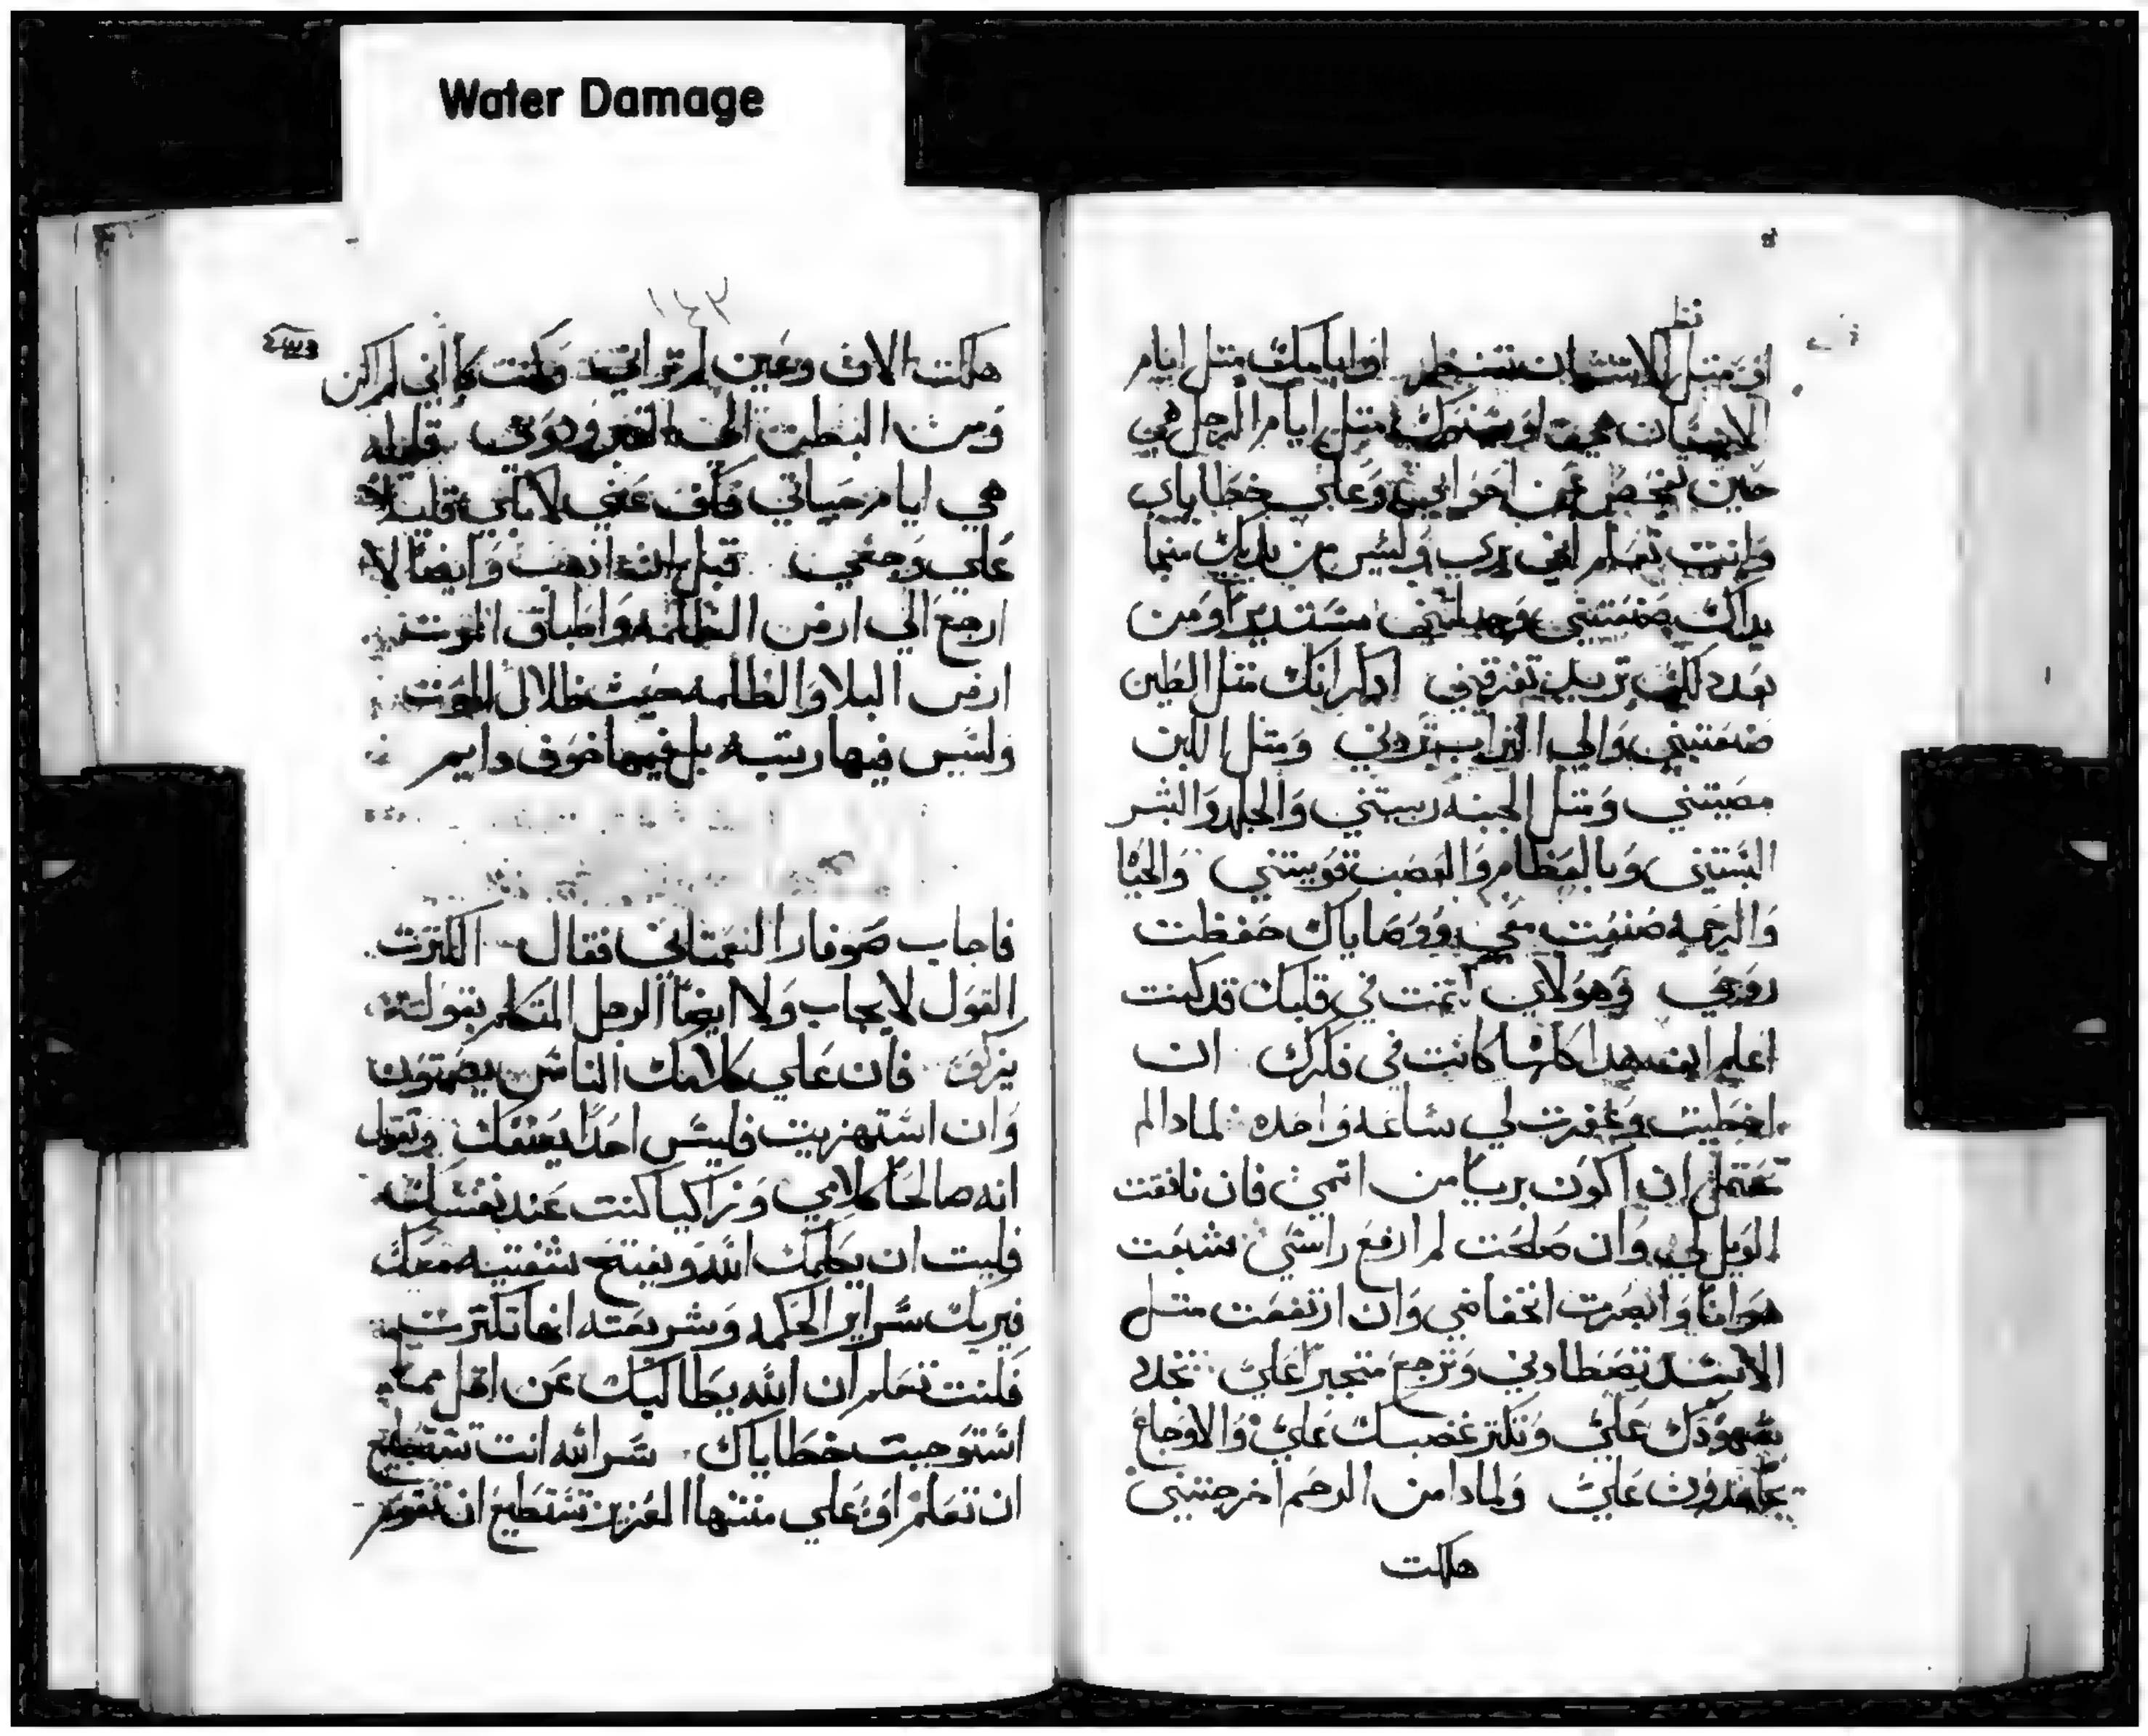 Water Damage
نظر
او مثل الانسان تنظر او ايامك مثل ايام
الانسان هي او سنوك مثل ايام الرجل هي
حين تفحص عن احوابي وعلي خطاياي
وانت تعلم اني بري وليس من يديك منجا
يداك صنعتني وجبلتني مستديرا ومن
بعد دلك تريد تغرقني ادكر انك مثل الطين
صنعتني والي التراب تردني ومثل اللبن
مصيتني ومثل الجبنه ربيتني والجلد والبشر
البستني وبالعظام والعصب قويتني والحيا
والرحمه صنعت معي ووصاياك حفظت
روحي وهولاي اتمت في قلبك قد كنت
اعلم ان هدا كلها كانت في فكرك ان
اخطيت وغفرت لي ساعه واحده لمادا لم
تحتمل ان اكون بريا من اتمي فان نافقت
الويل لي وان صلحت لم ارفع راسي شبعت
هوانا وابصرت انخفاضي وان ارتفعت متل
الاسد تصطادني وترجع متجبرا علي تجدد
شهودك علي وتكتر غضبك علي والاوجاع
يجاهدون علي ولمادا من الرحم اخرجتني
هلكت
١٤٣
هلكت الان وعين لم تراني وكنت كاني لم اكن
ومن البطن الي القبر ودوي قليله
هي ايام حياتي فكف عني لاتاني قليلا
علي وجعي قبل ان ادهب وايضا لا
ارجع الي ارض الظلمه واطباق الموت
ارض البلا والظلمه حيث ظلال الموت
وليس فيها رتبه بل فيها خوف دايم
فاجاب صوفار النعمتاني فقال اكترت
القول لا يجاب ولا ايضا الرجل المتكلم بقوله
يزكي فان علي كلامك الناس يصمتون
وان استهزيت فليس احدا يعنفك وتقول
انه صالحا كلامي وزاكيا كنت عند نفسك
فليت ان يكلمك الله ويفتح شفتيه معك
فيريك سراير الحكمه وشريعته انها تكترت
فكنت تعلم ان الله يطالبك عن اقل مما
استوجبت خطاياك سر الله انت تستطيع
ان تعلم او علي منتها العزيز تستطيع ان تقوم